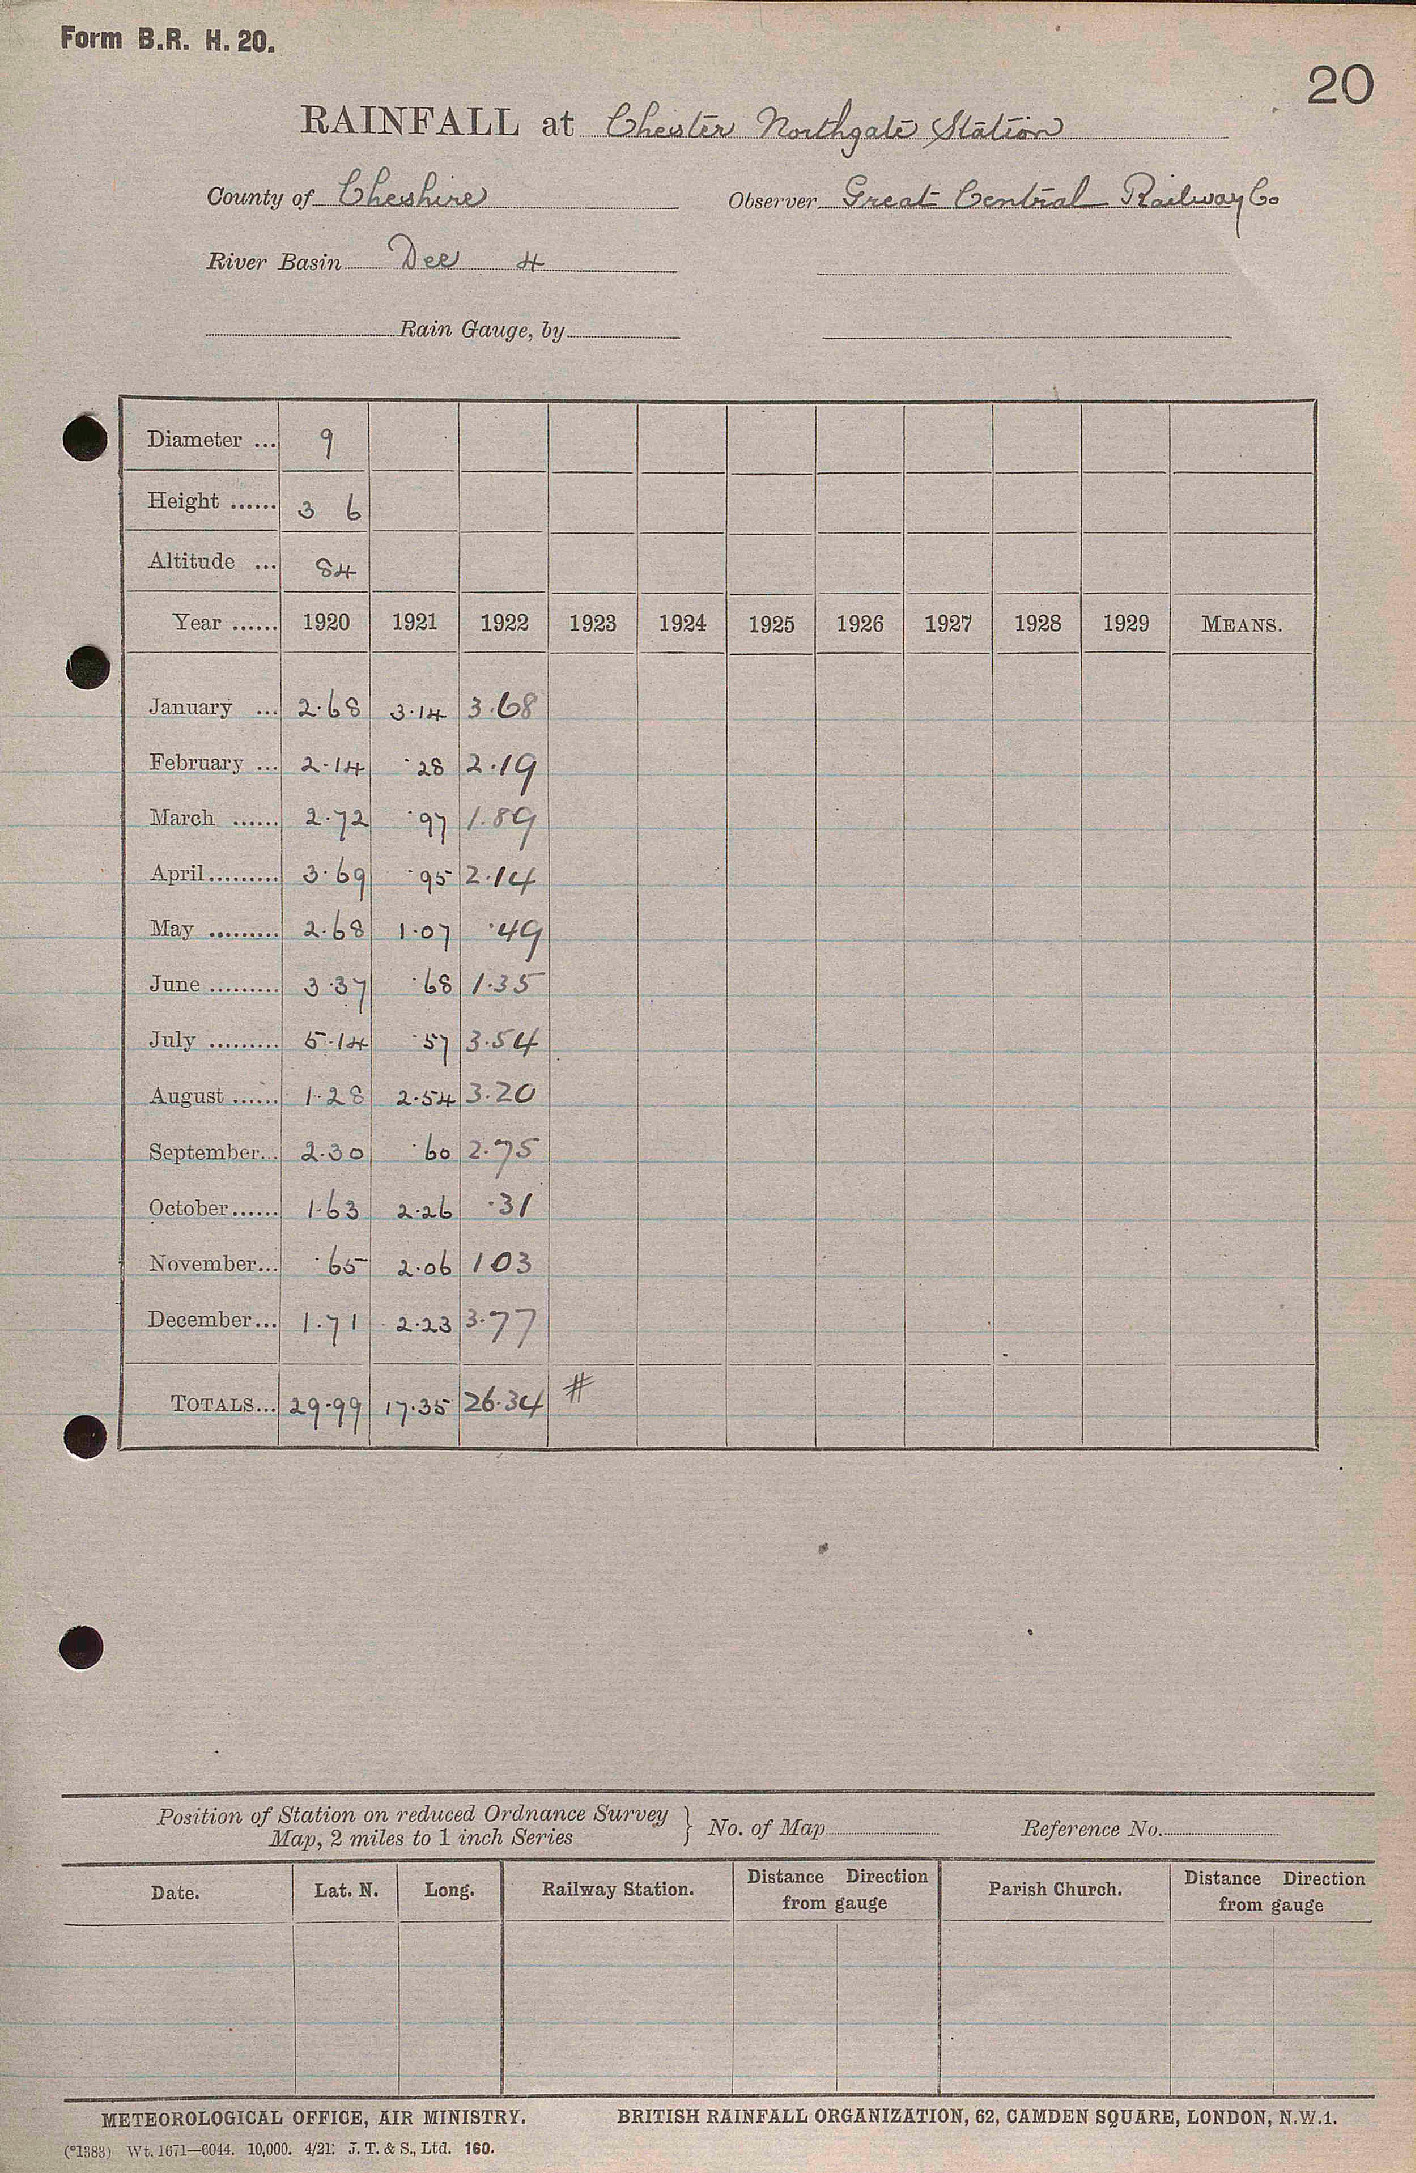 Form B.R. H. 20.
20
RAINFALL at Chester Northgate Station
County of Cheshire Observer Great Central Railway Co
River Basin Dee 4
Rain Gauge, by
Diameter ... 9
Height ...... 3 6
Altitude ... 84
Year ...... 1920 1921 1922 1923 1924 1925 1926 1927 1928 1929 MEANS.
January ... 2.68 3.14 3.68
February ... 2.14 .28 2.19
March ...... 2.72 .97 1.89
April......... 3.69 .95 2.14
May ......... 2.68 1.07 .49
June ......... 3.37 .68 1.35
July ......... 5.14 .57 3.54
August ...... 1.28 2.54 3.20
September... 2.30 .60 2.75
October...... 1.63 2.26 .31
November... .65 2.06 1 03
December... 1.71 2.23 3.77
TOTALS... 29.99 17.35 26.34 #
Position of Station on reduced Ordnance Survey } No. of Map Reference No.
Map, 2 miles to 1 inch Series
Date. Lat. N. Long. Railway Station. Distance Direction Parish Church. Distance Direction
from gauge from gauge
METEOROLOGICAL OFFICE, AIR MINISTRY. BRITISH RAINFALL ORGANIZATION, 62, CAMDEN SQUARE, LONDON, N.W.1.
(*1388) Wt. 1671—6044. 10,000. 4/21. J. T. & S., Ltd. 160.